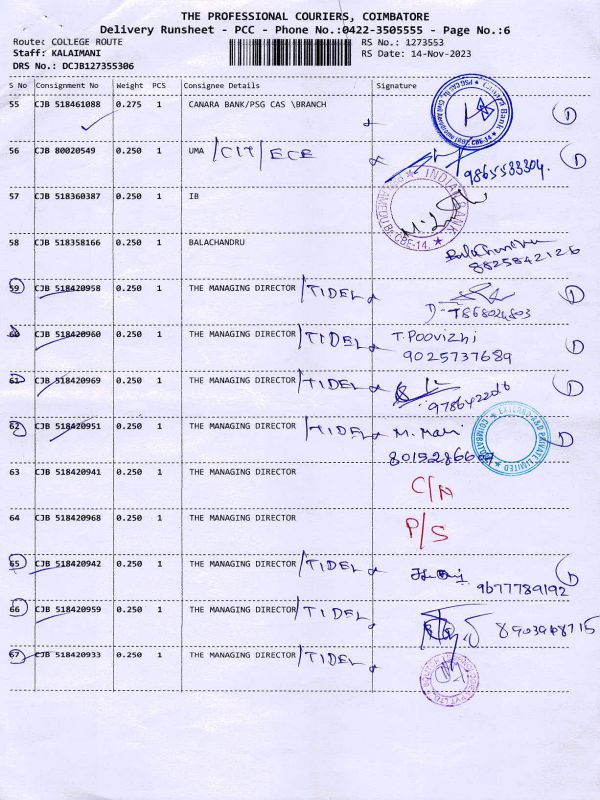 THE PROFESSIONAL COURIERS, COIMBATORE
Delivery Runsheet - PCC - Phone No.:0422-3505555 - Page No.:6
Route: COLLEGE ROUTE
RS No.: 1273553
Staff: KALAIMANI
RS Date: 14-Nov-2023
DRS No.: DCJB127355306
S No Consignment No Weight PCS Consignee Details Signature
55 CJB 518461088 0.275 1 CANARA BANK/PSG CAS \BRANCH
56 CJB 80020549 0.250 1 UMA /CIT/ECE 9865533304. D
57 CJB 518360387 0.250 1 IB INDIAN BANK CBE-14.
58 CJB 518358166 0.250 1 BALACHANDRU 8825842126
59 CJB 518420958 0.250 1 THE MANAGING DIRECTOR /TIDEL 7868024803 D
60 CJB 518420960 0.250 1 THE MANAGING DIRECTOR /TIDEL T. POOVIZHI D
9025737689
61 CJB 518420969 0.250 1 THE MANAGING DIRECTOR /TIDEL D
62 CJB 518420951 0.250 1 THE MANAGING DIRECTOR /TIDEL M. Mani D
63 CJB 518420941 0.250 1 THE MANAGING DIRECTOR C/N
64 CJB 518420968 0.250 1 THE MANAGING DIRECTOR P/S
65 CJB 518420942 0.250 1 THE MANAGING DIRECTOR /TIDEL 9677789192 D
66 CJB 518420959 0.250 1 THE MANAGING DIRECTOR /TIDEL
67 CJB 518420933 0.250 1 THE MANAGING DIRECTOR /TIDEL